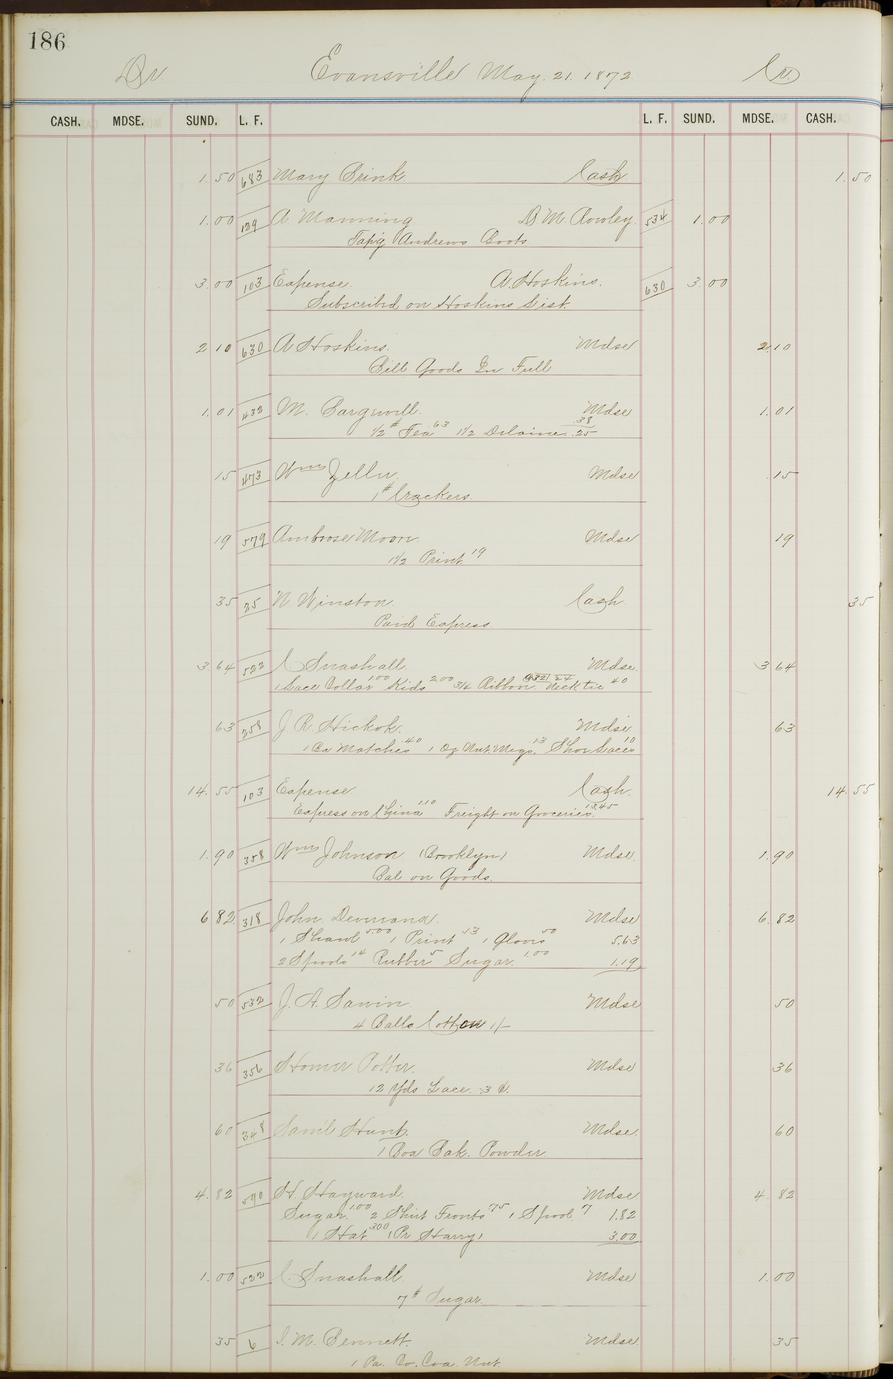 186
Dr Evansville May. 21. 1872 Cr.
CASH. MDSE. SUND. L. F. L. F. SUND. MDSE. CASH.
1.50 683 Mary Brink Cash 1.50
1.00 129 A Manning D M Rowley 534 1.00
Tap'g Andrews Boots
3.00 103 Expense. A Hoskins. 630 3.00
Subscribd on Hoskins List.
2 10 630 A Hoskins. Mdse 2.10
Bill Goods In Full
1.01 432 M. Mdse 1.01
.38
1/2 # Tea 63 1 1/2 Delaine .25
15 473 Wm Zeller Mdse .15
1 # Crackers
19 579 Ambrose Moon Mdse 19
1 1/2 Print 19
35 25 N Winston. Cash 35
Paid Express
3 64 522 C Snashall Mdse 3 64
1 Lace Collar 1.00 Kids 2.00 3/4 Ribbon 24 Neck tie 40
63 258 J R. Hickok. Mdse 63
1 Bx Matches .40 1 Oz Nut Megs. 13 Shoe Laces 10
14.55 103 Expense Cash. 14.55
Express on China 1.10 Freight on Groceries. 13.45
1.90 358 Wm Johnson (Brooklyn) Mdse. 1.90
Bal on Goods.
6 82. 318 John. Mdse 6.82
1 Shawl 5.00 1 Print 13 1 Gloves 50 5.63
2 Spools 14 Rubber 5 Sugar. 1.00 1.19
50 532 J. A. Sawin. Mdse 50
4 Balls Cotton 1/-
36 356 Homer Potter. Mdse 36
12 Yds Lace. 3 ¢.
60 348 Saml Hunt. Mdse. 60
1 Box Bak. Powder
4.82 590 H. Hayward. Mdse 4.82
Sugar. 1.00 2 Shirt Fronts 75 1 Spool 7 1.82
1 Hat 3.00 (Pr Harry) 3.00
1.00 522 C. Snashall Mdse 1.00
7 # Sugar
35 6 I. M. Bennett. Mdse. 35
1 Pa. Co. Coa. Nut.